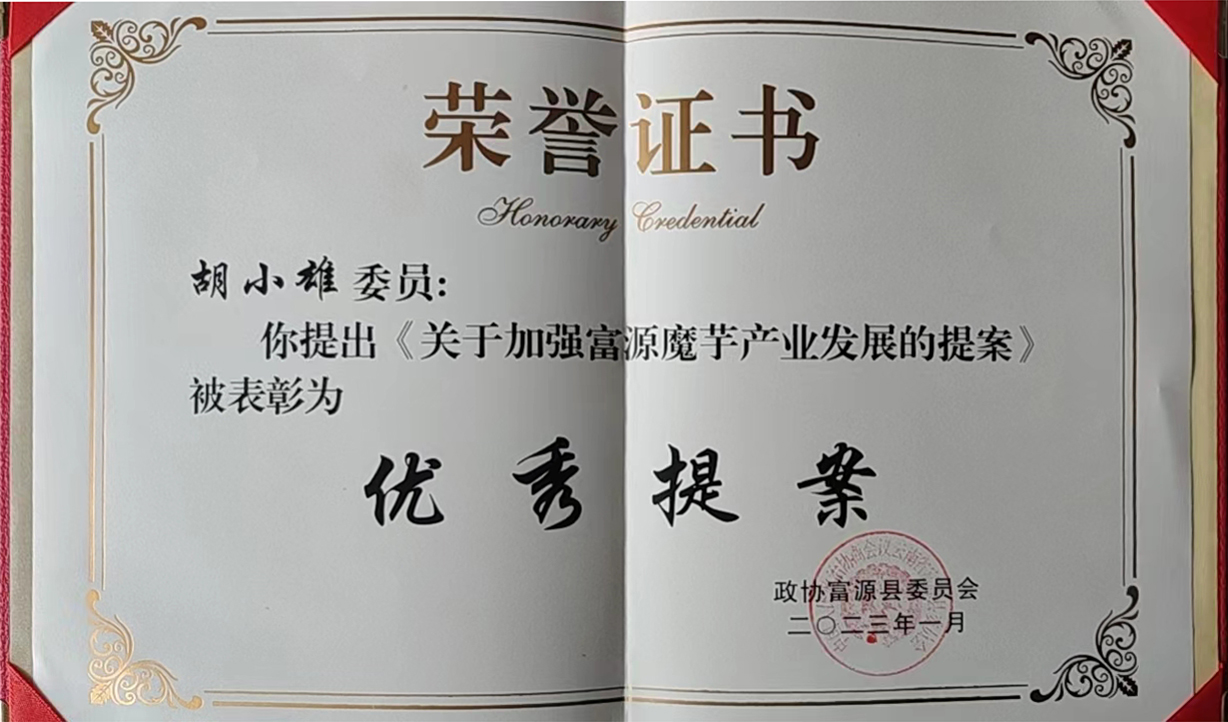 荣誉证书
Honorary Credential
胡小雄委员:
你提出《关于加强富源魔芋产业发展的提案》
被表彰为
优秀提案
政协富源县委员会
二〇二三年一月